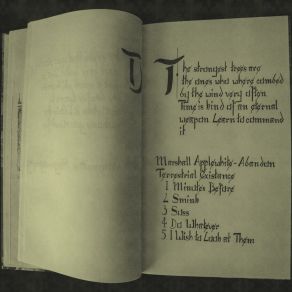 The strongest trees are
the ones who where candled
by the wind very often
Time is kind of an eternal
weapon Learn to command
it
Marshall Applewhite - Abandon
Terrestrial Existance
1 Minutes Before
2 Smink
3 Sass
4 Do Whatever
5 I Wish to Look at Them